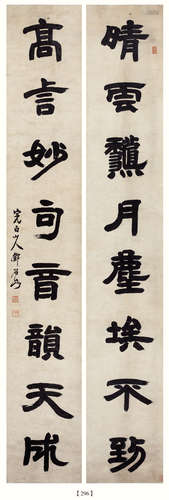 晴雲龝月塵埃不到
高言妙句音韻天成
完白山人鄧石如
【296】